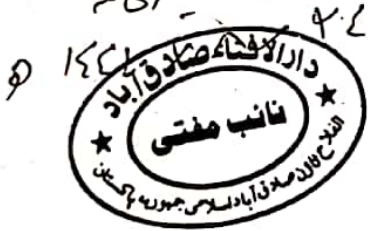 دارالافتاء صادق آباد
نائب مفتی
الفلاح ٹاؤن صادق آباد اسلامی جمہوریہ پاکستان